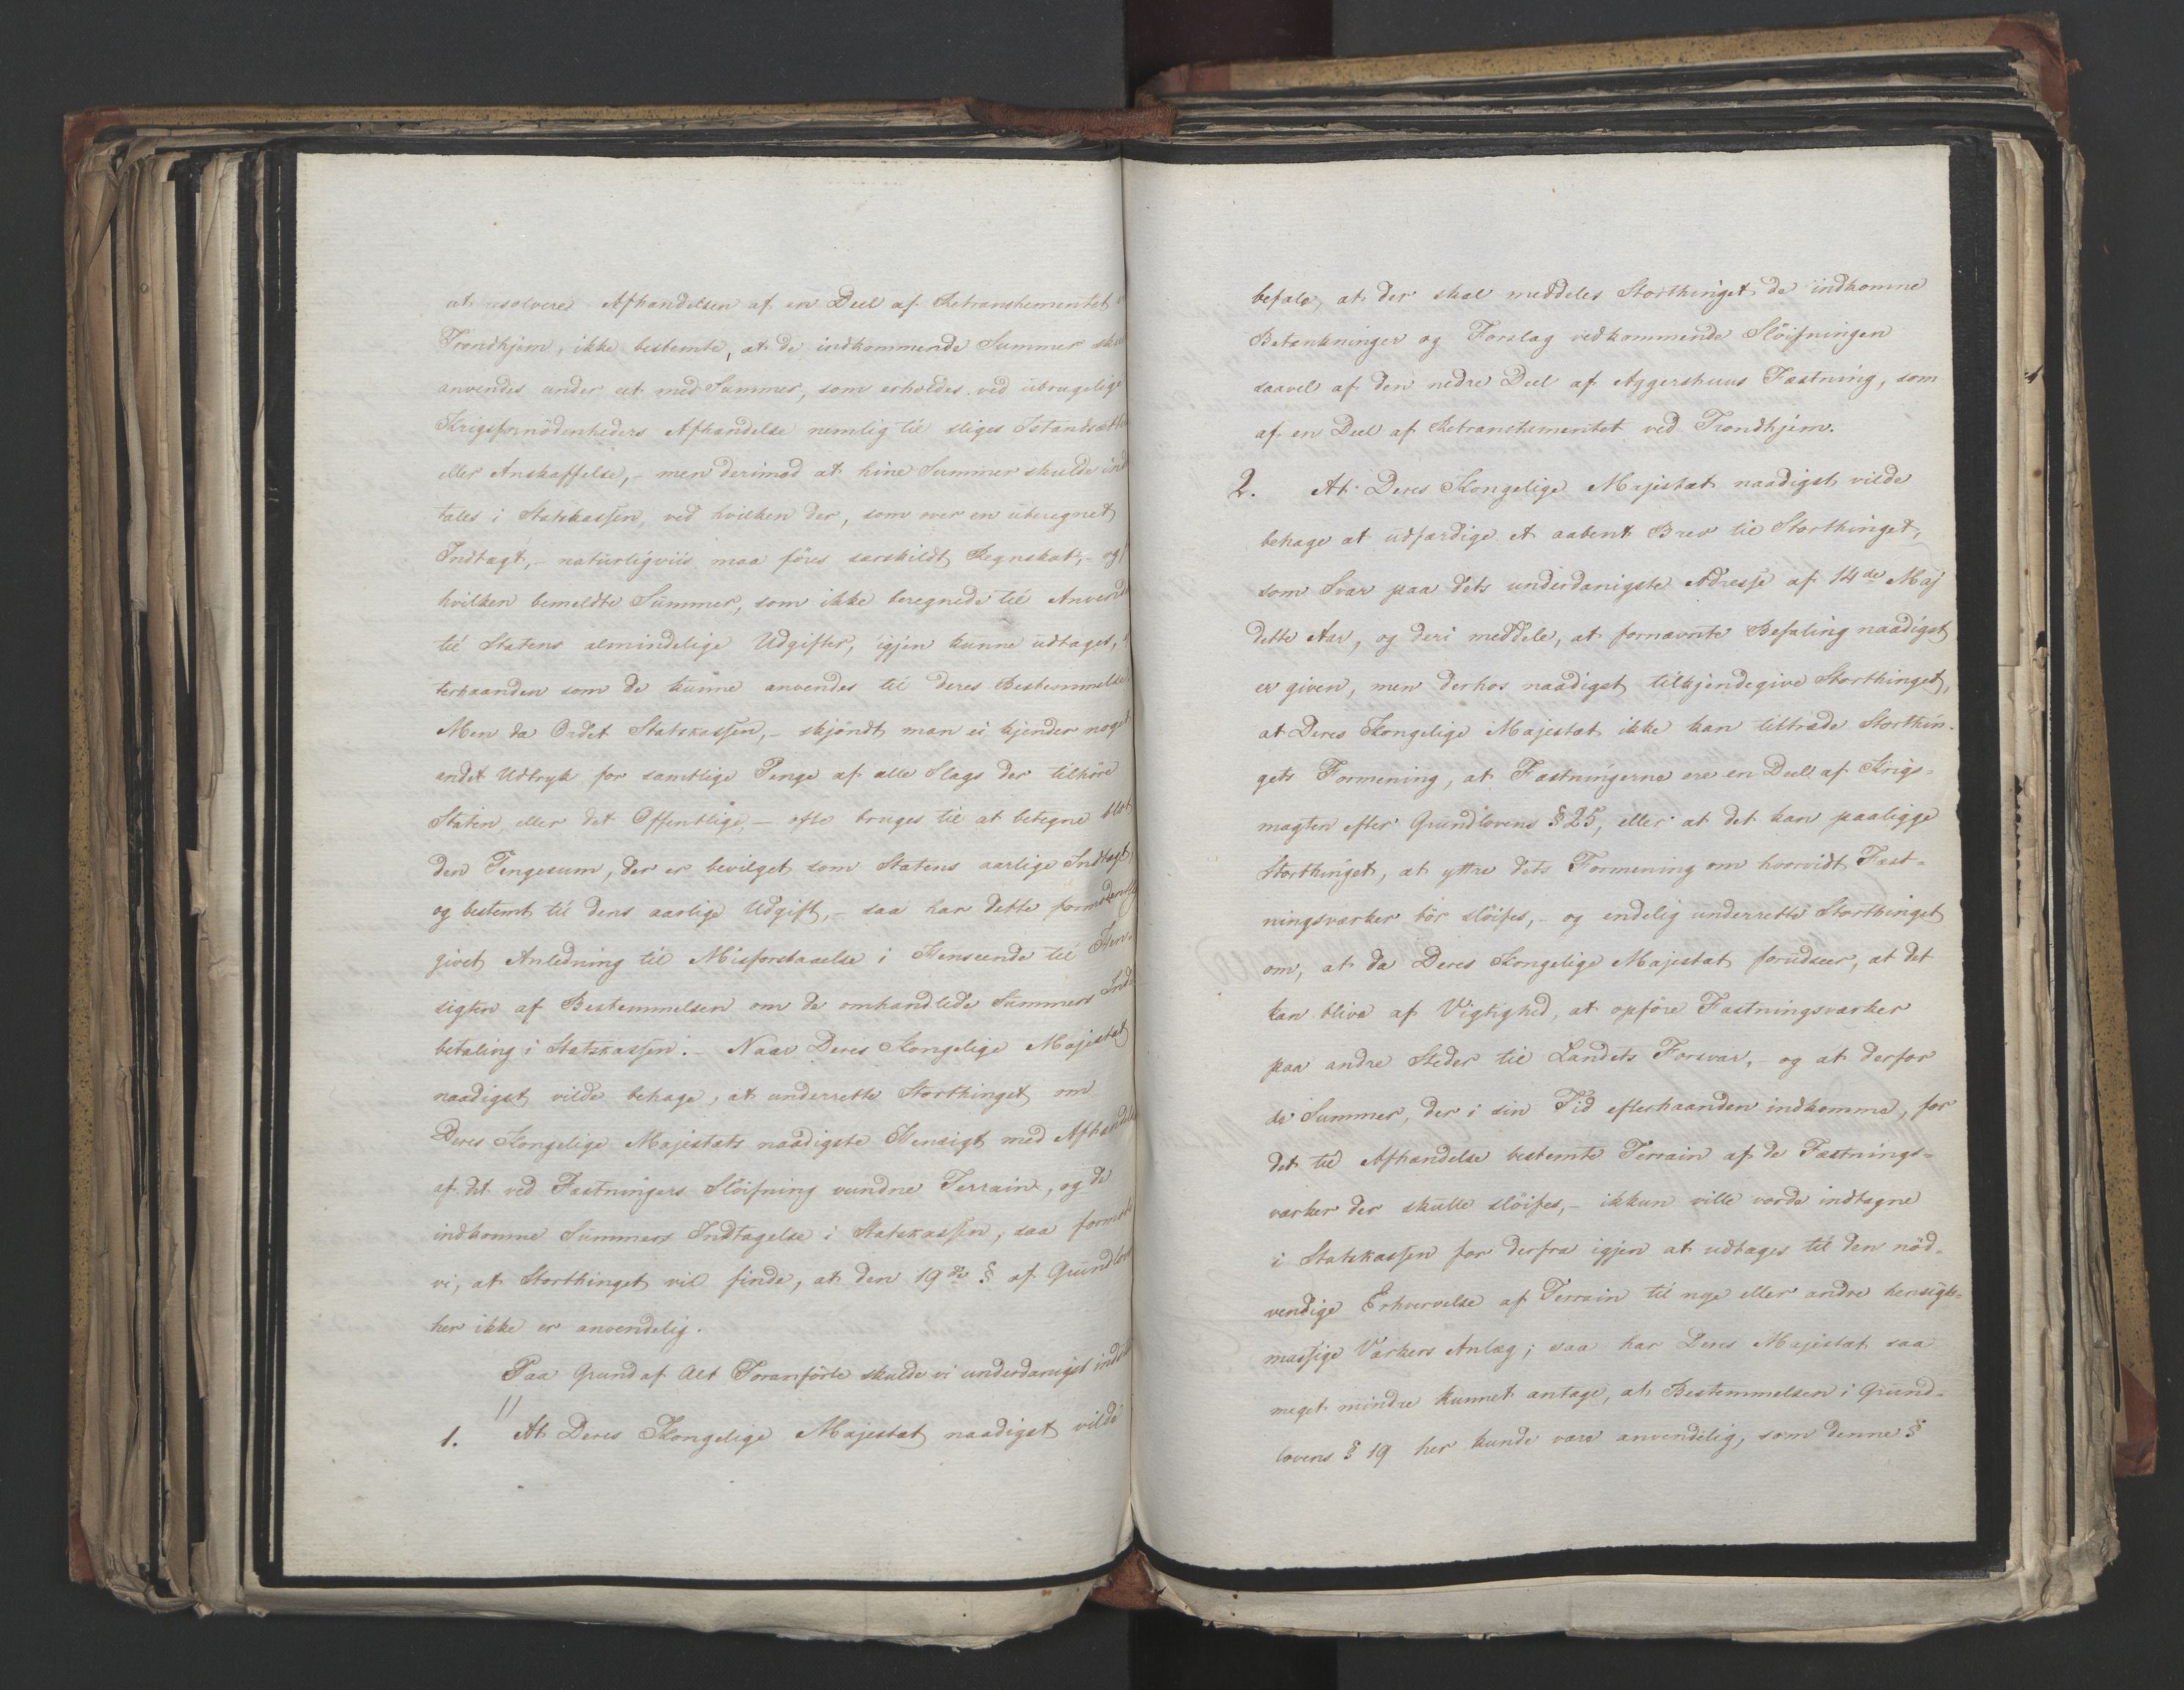 at resolveres Afhandelsen af en Deel af Retranchementet
Trondhjem, ikke bestemte, at de indkommende Summer sku
anvendes under eet med Summer, som erholdes ved ubrugelige
Krigsfornödenheders Afhandelse nemlig til sliges Istandsætte
eller Anskaffelse, - men derimod at hine Summer skulde ind
tales i Statskassen, ved hvilken der, som over en uberegnet
Indtægt, - naturligviis maa föres særskildt Regnskab, - og f
hvilken bemeldte Summer, som ikke beregnede til Anvend
til Statens almindelige Udgifter, igjen kunne udtages,
terhaanden som de kunne anvendes til deres Bestemmelse
Men da Ordet Statskassen, - skjöndt man ei kjender noget
andet Udtryk for samtlige Penge af alle Slags der tilhöre
Staten, eller det Offentlige, - ofte bruges til at betegne blot
den Pengesum, der er bevilget som Statens aarlige Indtægt,
og bestemt til dens aarlige Udgift, - saa har dette formodentlig
givet Anledning til Misforstaaelse i Henseende til Hen-
sigten af Bestemmelsen om de omhandlede Summers Ind
betaling i Statskassen. - Naar Deres Kongelige Majestæt
naadigst vilde behage, at underrette Storthinget om
Deres Kongelige Majestæts naadigste Hensigt med Afhandelse
af det ved Fæstningers Slöifning vundne Terrain, og de
indkomne Summers Indtagelse i Statskassen, saa formode
vi, at Storthinget vil finde, at den 19de § af Grundlov
her ikke er anvendelig.
Paa Grund af Alt Foranförte skulde vi underdanigst indst
1. At Deres Kongelige Majestæt naadigst vilde
befale, at der skal meddeles Storthinget de indkomne
Betænkninger og Forslag vedkommende Slöifningen
saavel af den nedre Deel af Aggershuus Fæstning, som
af en Deel af Retranchementet ved Trondhjem.
2. At Deres Kongelige Majestæt naadigst vilde
behage at udfærdige et aabent Brev til Storthinget,
som Svar paa dets underdanigste Adresse af 14de Maj
dette Aar, og deri meddele, at fornævnte Befaling naadigst
er given, men derhos naadigst tilkjendegive Storthinget,
at Deres Kongelige Majestæt ikke kan tiltræde Storthin-
gets Formening, at Fæstningerne ere en Deel af Krigs-
magten efter Grundlovens § 25, eller at det kan paaligge
Storthinget, at yttre dets Formening om hvorvidt Fæst-
ningsværker bör slöifes, - og endelig underrette Storthinget
om, at da Deres Kongelige Majestæt forudseer, at det
kan blive af Vigtighed, at opföre Fæstningsværker
paa andre Steder til Landets Forsvar, - og at derfor
de Summer, der i sin Tid efterhaanden indkomme, for
det til Afhandelse bestemte Terrain af de Fæstnings-
værker der skulle slöifes, - ikkun ville vorde indtagne
i Statskassen for derfra igjen at udtages til den nöd-
vendige Erhvervelse af Terrain til nye eller andre hensigts-
mæssige Værkers Anlæg; saa har Deres Majestæt saa
meget mindre kunnet antage, at Bestemmelsen i Grund-
lovens § 19 her kunde være anvendelig, som denne §